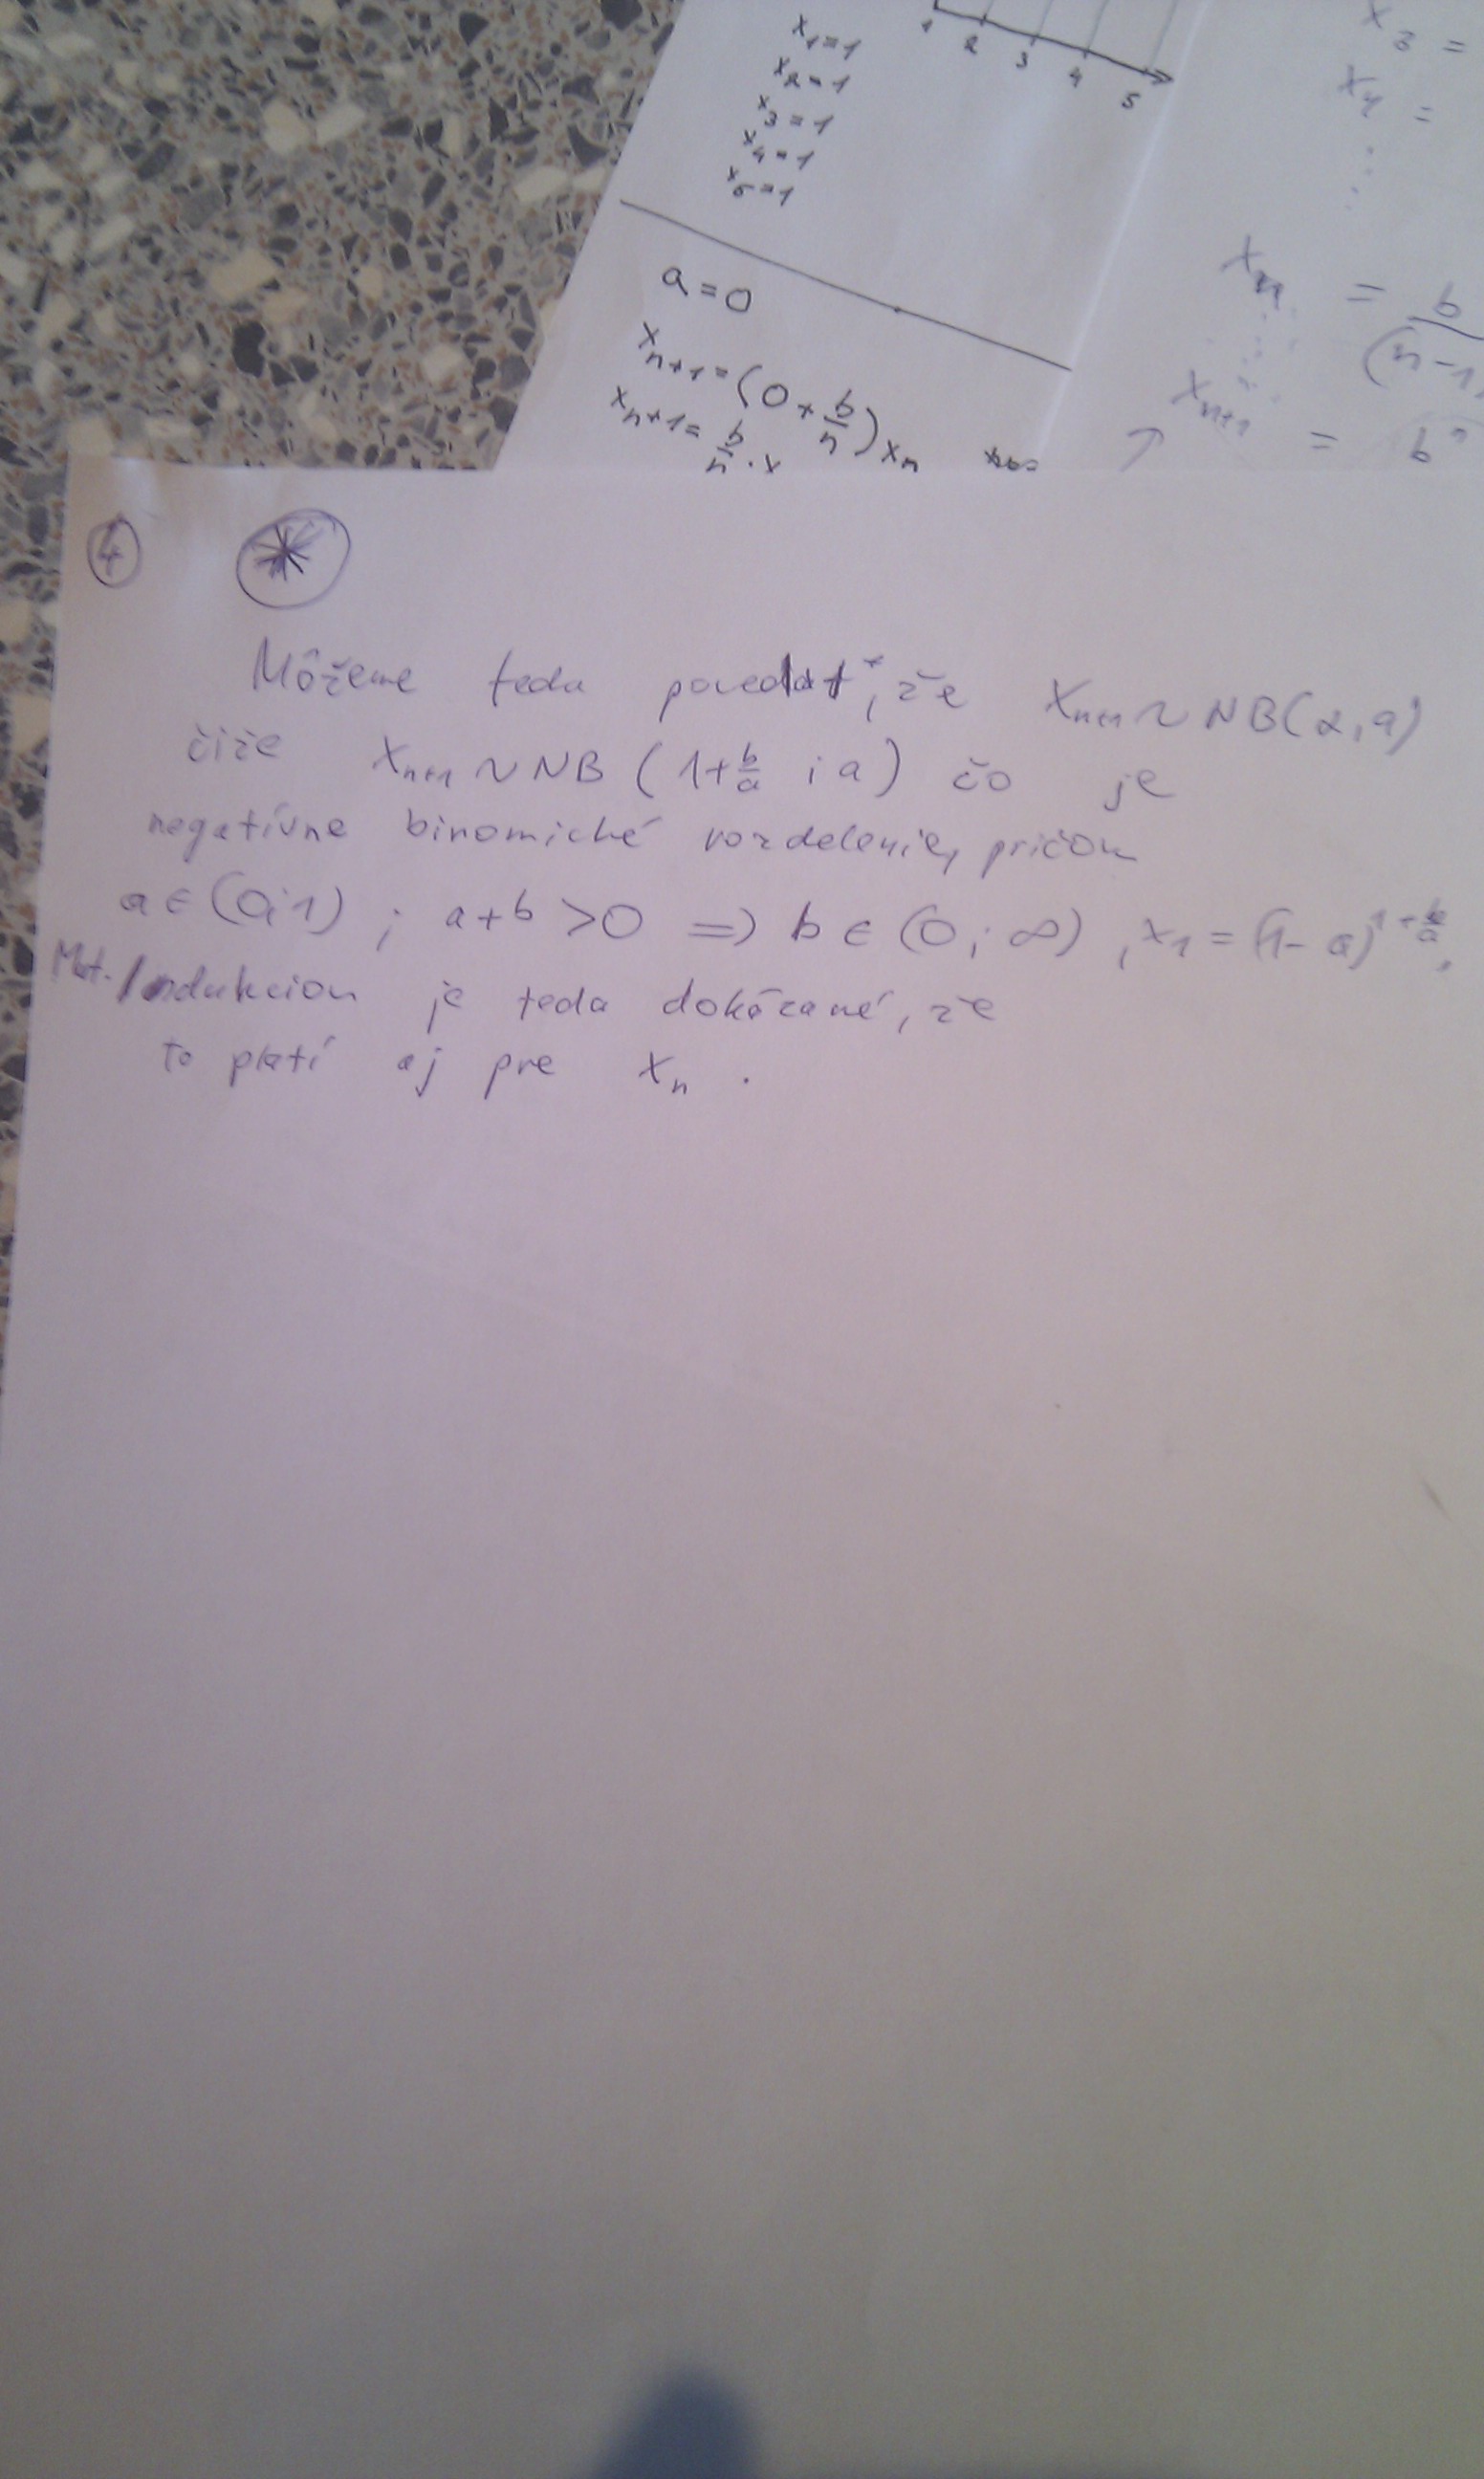 x₁=1
x₂=1
x₃=1
x₄=1
x₅=1
1 2 3 4 5
a=0
xₙ₊₁=(0+b/n)xₙ
xₙ₊₁=b/n·x
x₃ =
x₄ =
xₙ = b/(n-1
xₙ₊₁ = b
④ *
Môžeme teda povedať, že xₙ₊₁ ~ NB(α,a)
čiže xₙ₊₁ ~ NB (1+b/a ; a) čo je
negatívne binomické rozdelenie, pričom
a ∈ (0;1) ; a+b >0 => b ∈ (0; ∞) , x₁ = (1-a)^(1+b/a),
Mat. Indukciou je teda dokázané, že
to platí aj pre xₙ .